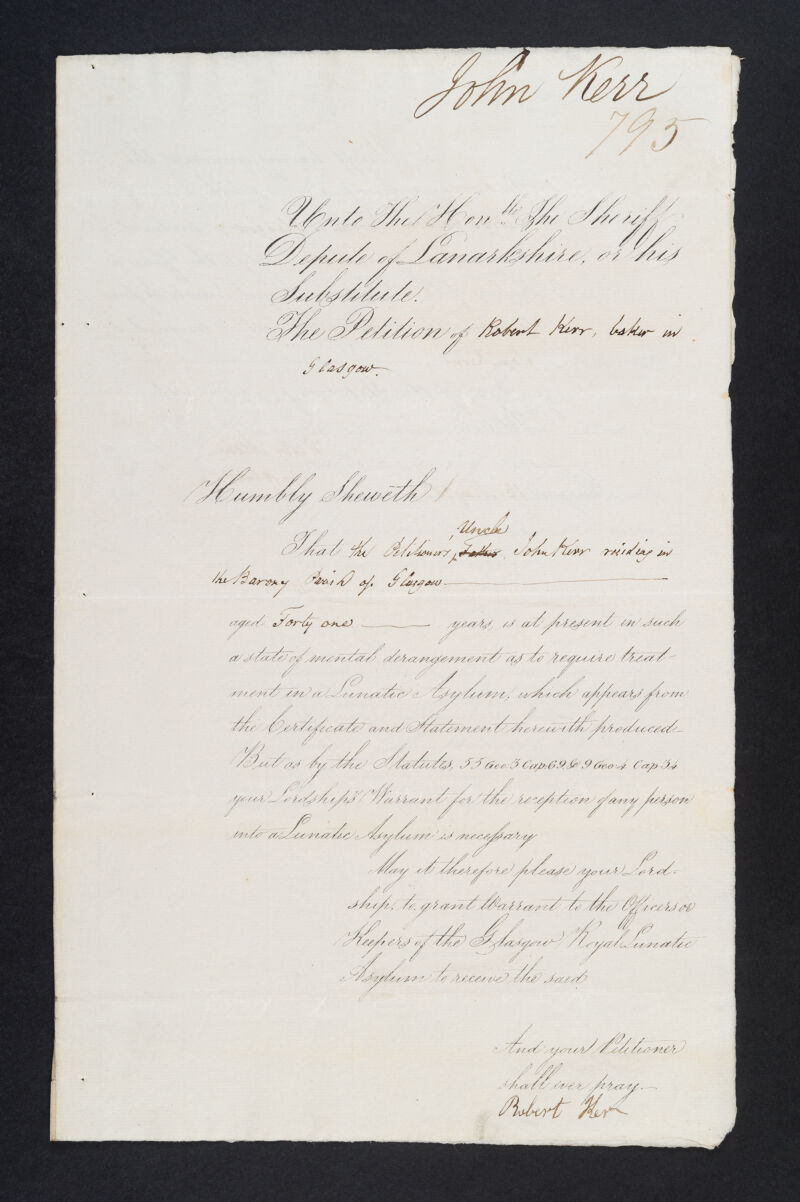 John Kerr
795
Unto The Honble The Sheriff
Depute of Lanarkshire, or his
Substitute.
The Petition of Robert Kerr, baker in
Glasgow.
Humbly Sheweth
Uncle
That the Petitioners, Father, John Kerr residing in
the Barony Parish of Glasgow
aged Forty one years, is at present in such
a state of mental derangement as to require treat-
ment in a Lunatic Asylum, which appears from
the Certificate and Statement herewith produced-
But as by the Statutes, 55 Geo 3 Cap 69 & 9 Geo 4 Cap 34
your Lordships Warrant for the reception of any person
into a Lunatic Asylum is necessary
May it therefore please your Lord-
ship, to grant Warrant to the Officers or
Keepers of the Glasgow Royal Lunatic
Asylum to receive the said
And your Petitioner
shall ever pray.-
Robert Kerr